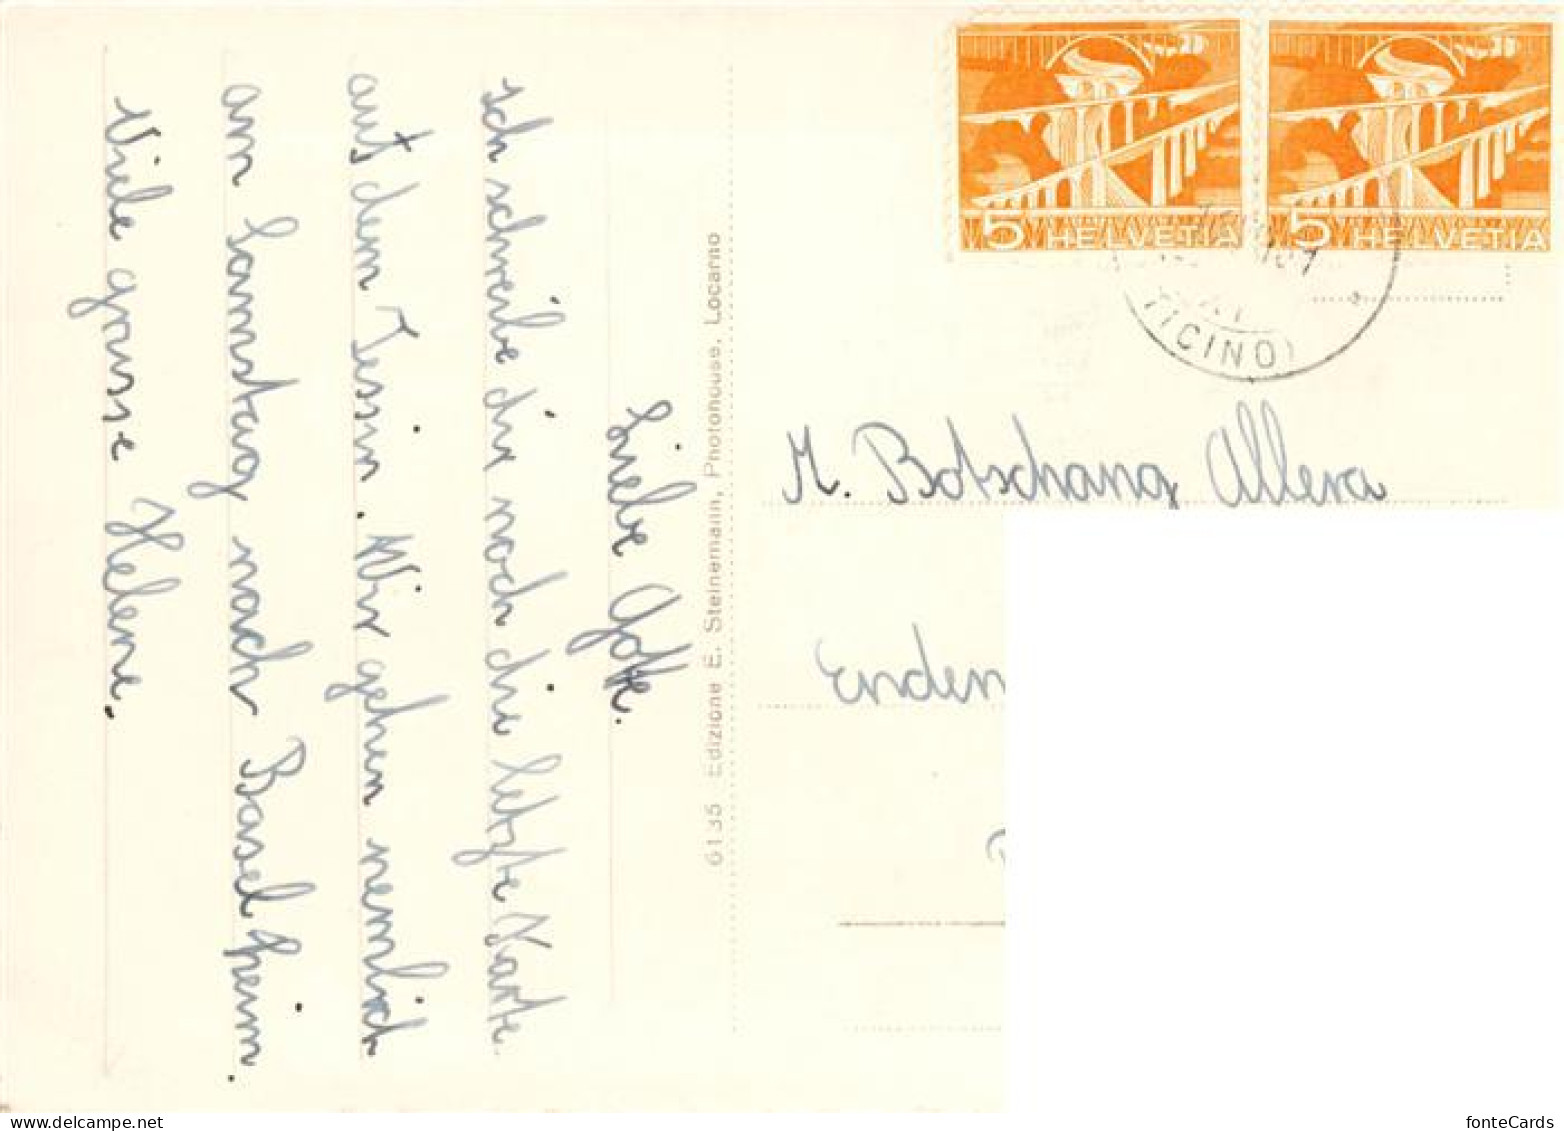 Liebe Gotte.
ich schreibe dir noch die letzte Karte
aut dem Tessin. Wir gehen nemlich
am Samstag nach Basel heim.
Viele grüsse Helene.
6135 Edizione E. Steinemann, Photohouse, Locarno
5 HELVETIA
5 HELVETIA
(TICINO)
M. Botschang Allera
Enden
fonteCards